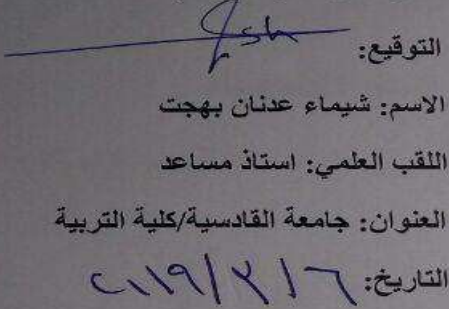 التوقيع:
الاسم: شيماء عدنان بهجت
اللقب العلمي: استاذ مساعد
العنوان: جامعة القادسية/كلية التربية
التاريخ: ٢٠١٩/٣/٦